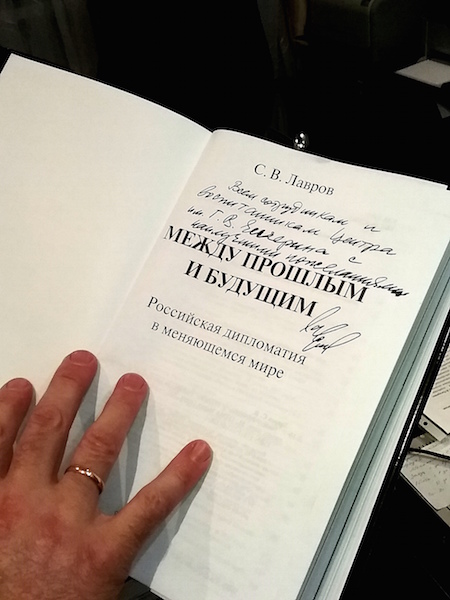 С. В. Лавров
Всем сотрудникам и
воспитанникам Центра
им. Г. В. с
наилучшими пожеланиями
МЕЖДУ ПРОШЛЫМ
И БУДУЩИМ
Российская дипломатия
в меняющемся мире